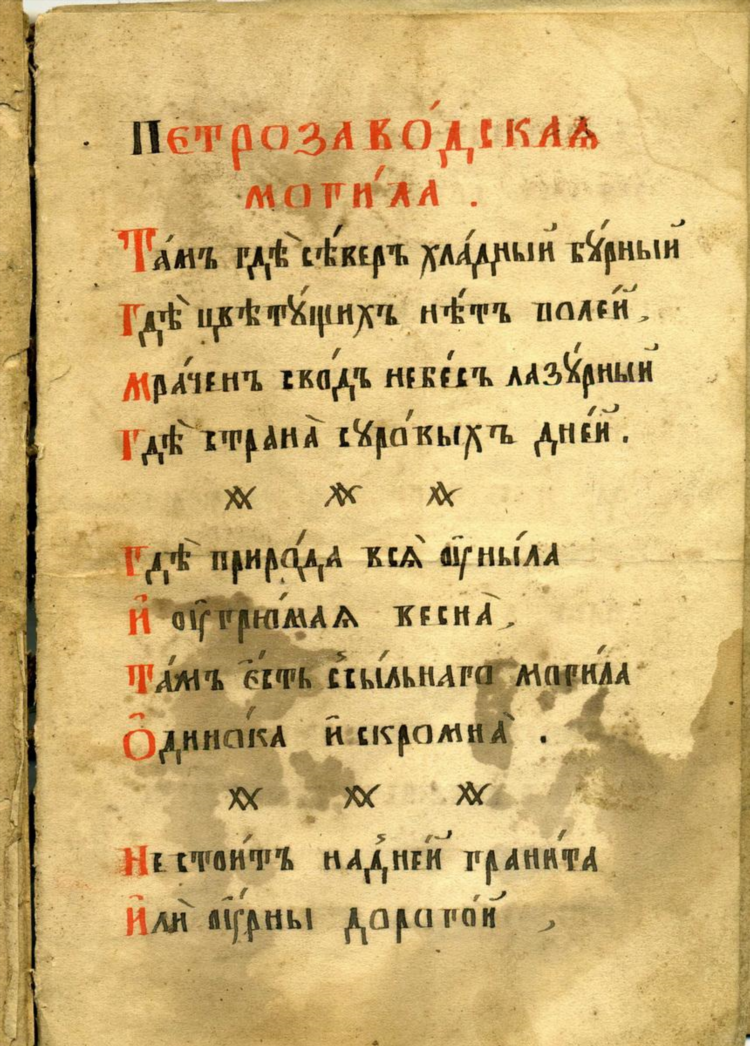 Петрозаво́дская
моги́ла .
Та́мъ гдѣ̀ сѣ́веръ хла́дный бу́рный
Гдѣ̀ цвѣту́щихъ нѣ́тъ поле́й ,
Мра́ченъ сво́дъ небе́съ лазу́рный
Гдѣ̀ страна̀ суро́выхъ дне́й .
Гдѣ̀ приро́да вся̀ ᲂу҆ны́ла
И҆ ᲂу҆грю́мая весна̀ ,
Та́мъ є҆́сть ссы́льнаго моги́ла
Ѻ҆дино́ка и҆ скромна̀ .
Не стои́тъ над̾не́й грани́та
И҆лѝ ᲂу҆́рны дорого́й ,